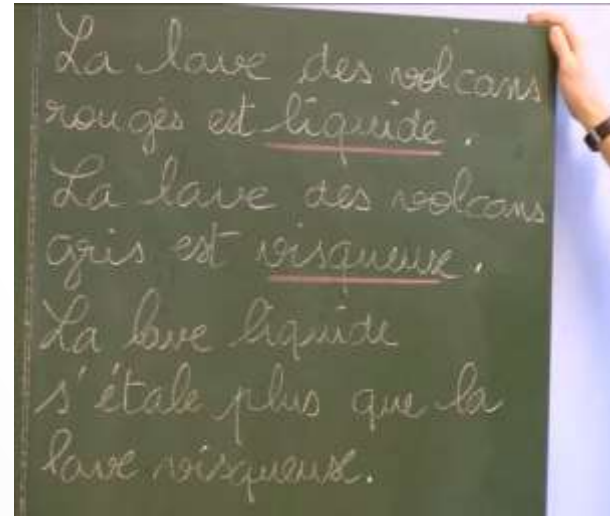 La lave des volcans
rouges est liquide.
La lave des volcans
gris est visqueuse.
La lave liquide
s'étale plus que la
lave visqueuse.